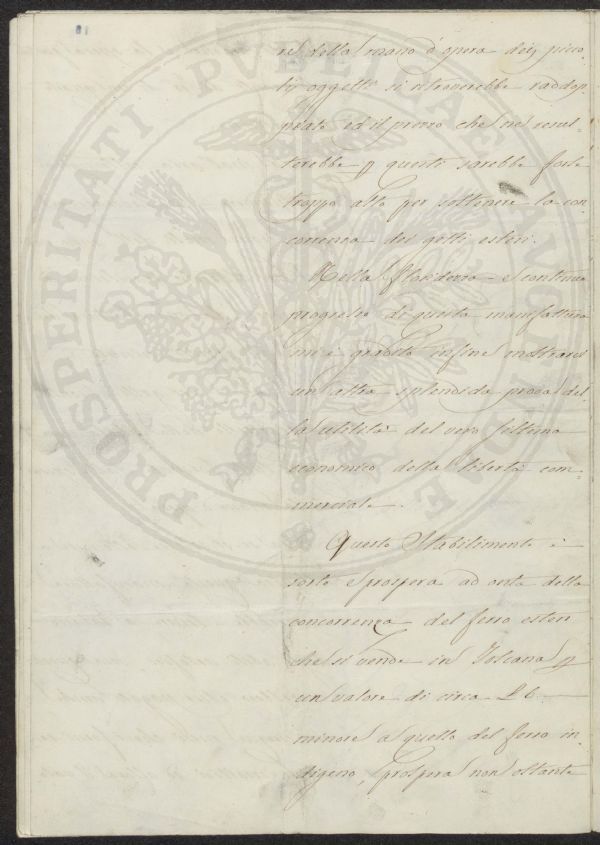 re della mano d'opera dei picco-
li oggetti si ritroverebbe raddop-
piato ed il prezzo che ne resul-
terebbe p questo sarebbe forse
troppo alto per sostenere la con-
correnza dei getti esteri.
Nella floridezza e continuo
progresso di questa manifattura
mi è gradito infine mostrarvi
un altra splendida prova del
la utilità del vero sistema
economico della libertà com-
merciale.
Questo Stabilimento è
sorto e prospera ad onta della
concorrenza del ferro estero
che si vende in Toscana p
un valore di circa £ 6
minore a quello del ferro in-
digeno, prospera non ostante
PROSPERITATI PUBLICAE AUGENDAE